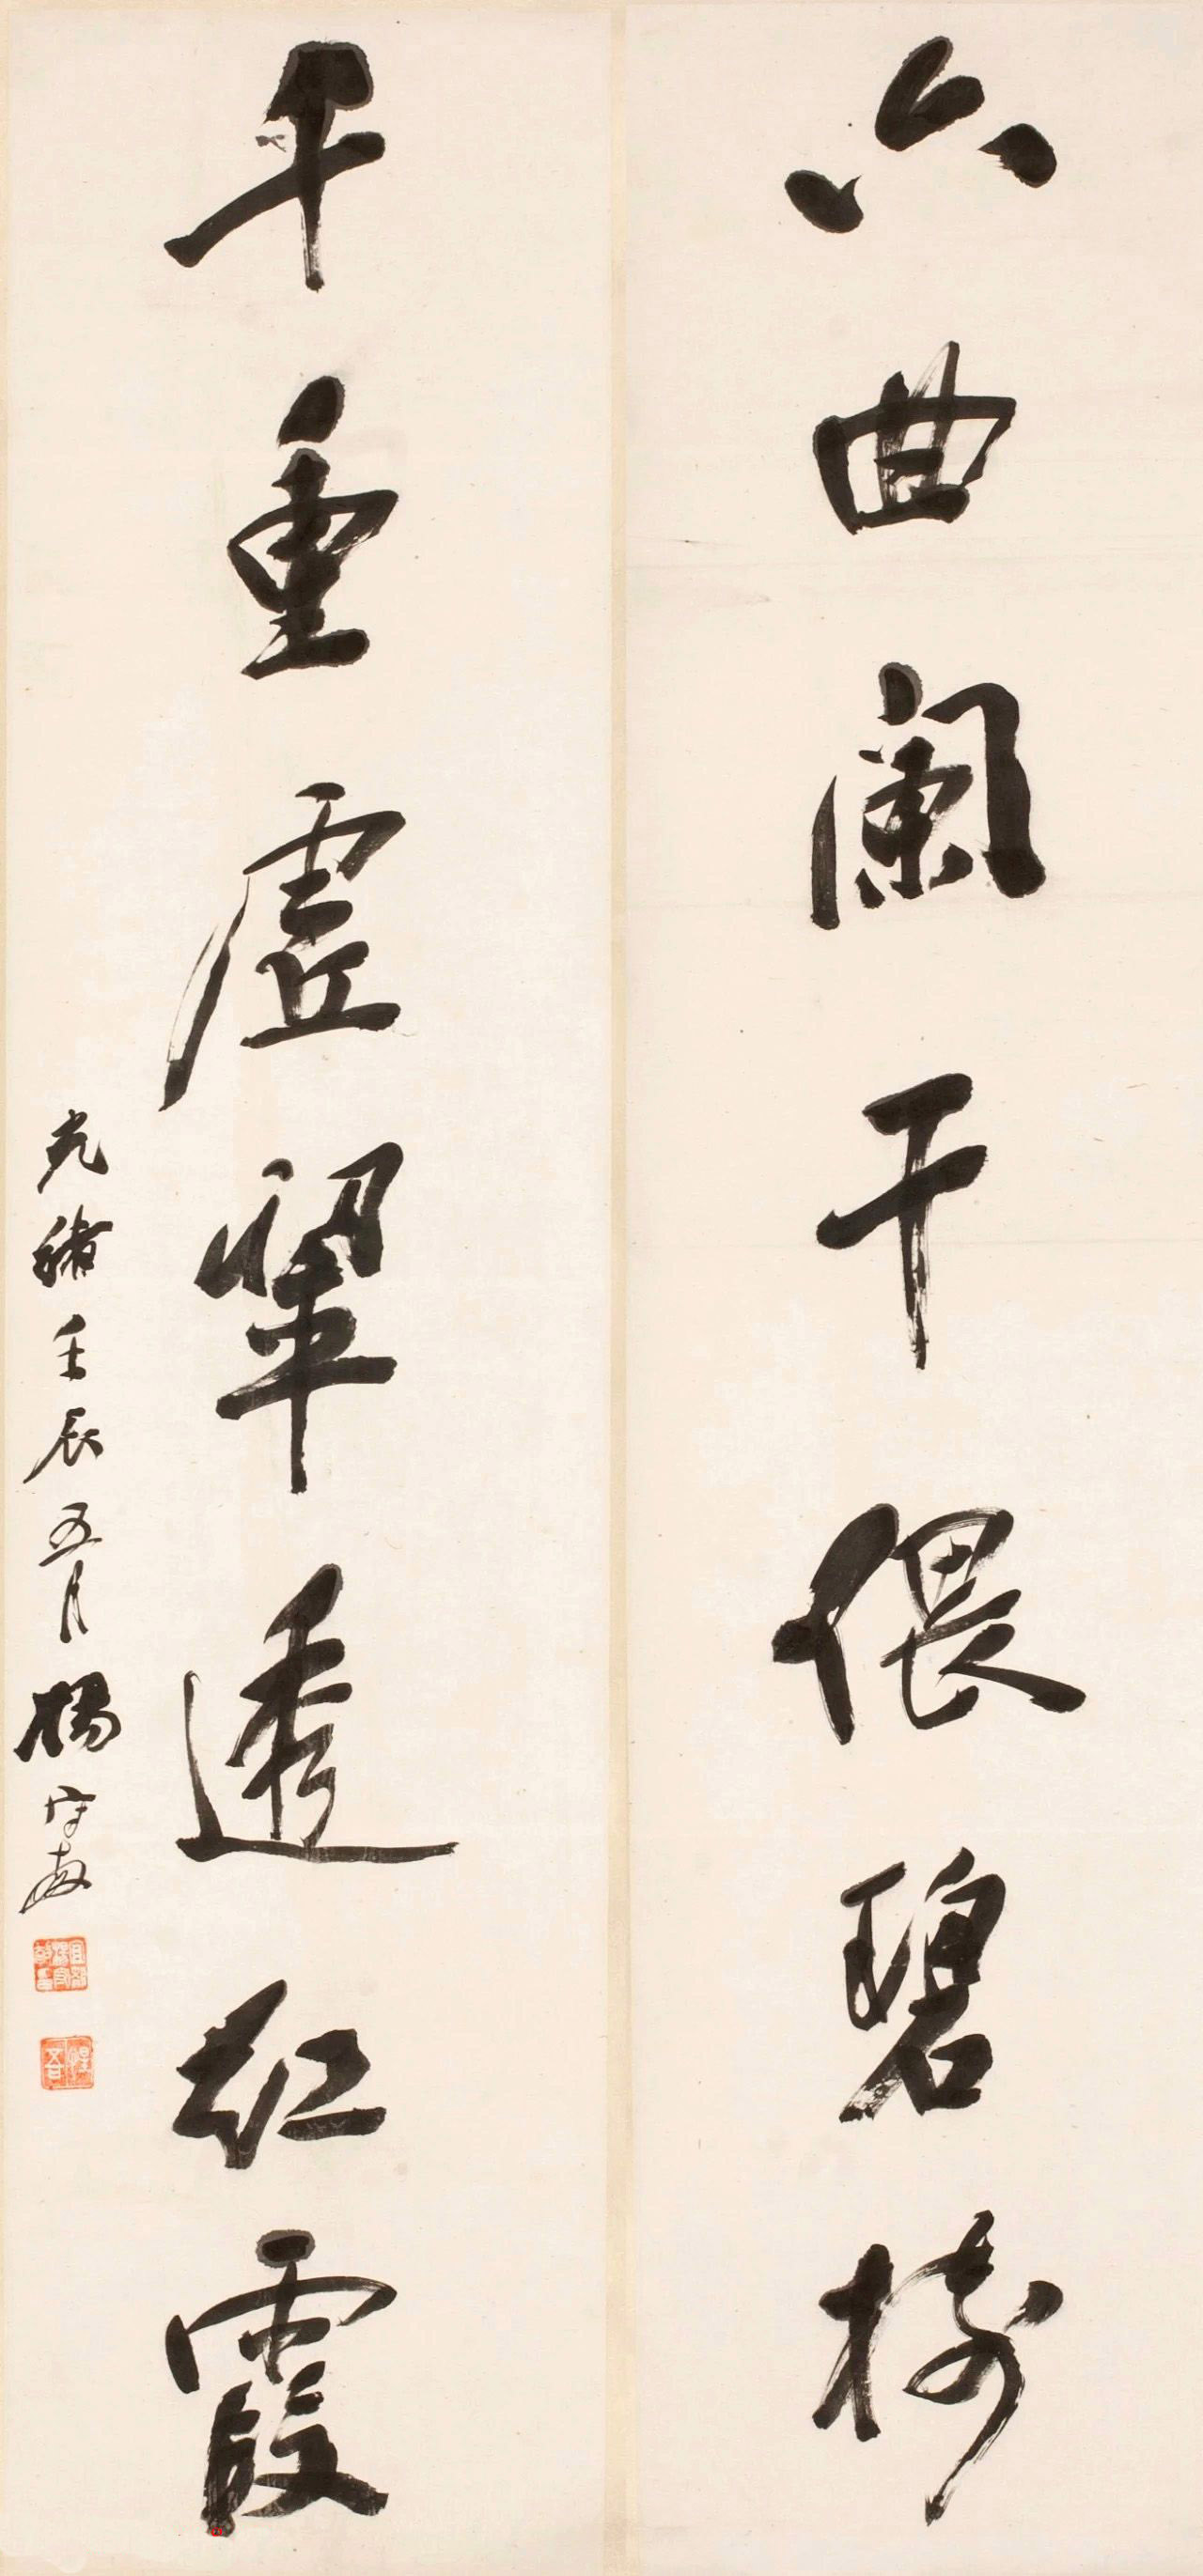 六曲闌干偎碧樹
千重虛翠透紅霞
光緒壬辰五月楊守敬
惺吾